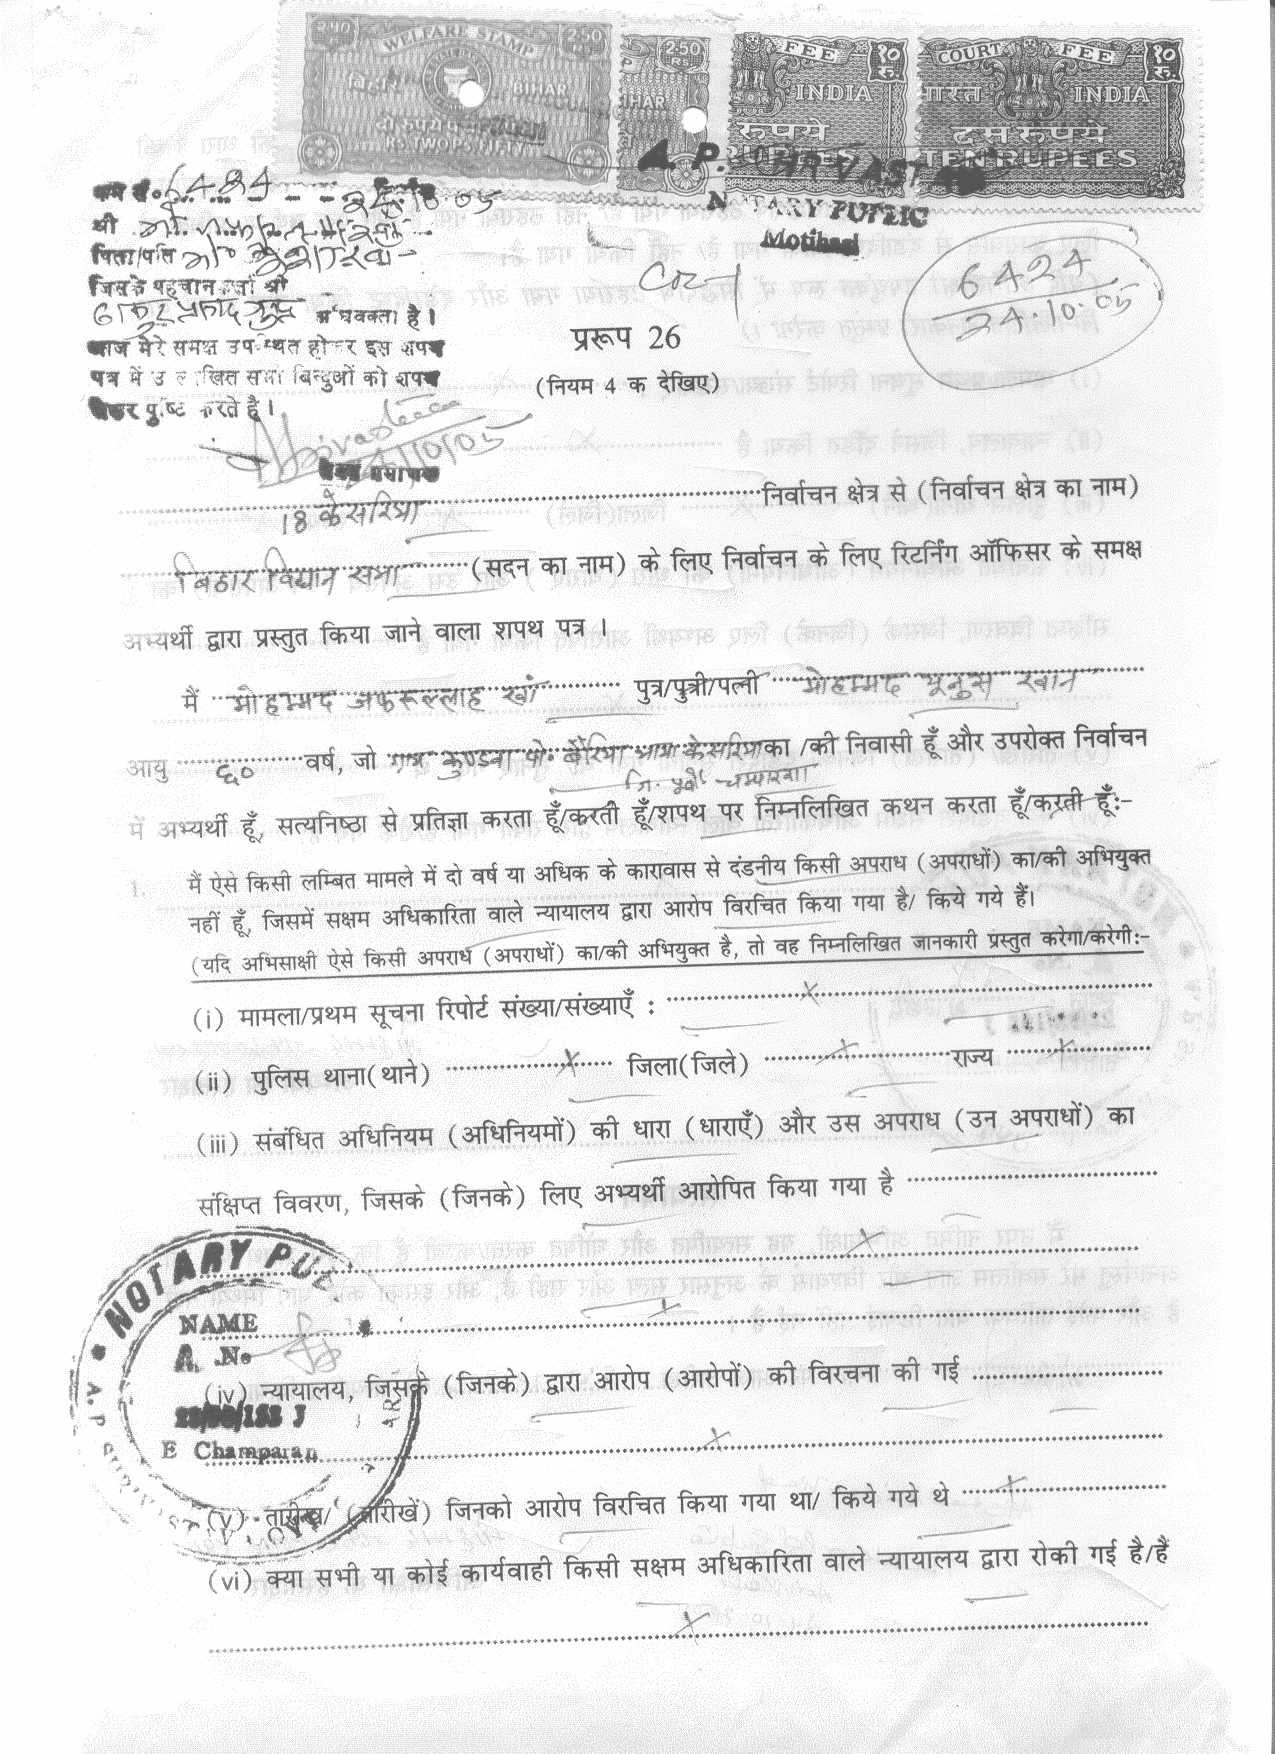 2.50 WELFARE STAMP 2.50 RS
बिहार BIHAR
दो रुपये
RS. TWO Ps. FIFTY
2.50 RS
FEE १० रु.
INDIA
रुपये
RUPEES
COURT FEE १० रु.
भारत INDIA
दस रुपये
TEN RUPEES
NOTARY PUBLIC
Motihari
6424
24.10.05
श्री
पिता/पति
जिसके पहचान कर्ता श्री
अधिवक्ता है।
आज मेरे समक्ष उपस्थित होकर इस शपथ
पत्र में उल्लिखित सभी बिन्दुओं को शपथ
लेकर पुष्टि करते है।
24/10/05
6424
24.10.05
प्ररूप 26
(नियम 4 क देखिए)
18 केसरिया निर्वाचन क्षेत्र से (निर्वाचन क्षेत्र का नाम)
बिहार विधान सभा (सदन का नाम) के लिए निर्वाचन के लिए रिटर्निंग ऑफिसर के समक्ष
अभ्यर्थी द्वारा प्रस्तुत किया जाने वाला शपथ पत्र ।
मैं मोहम्मद अफरूल्लाह खाँ पुत्र/पुत्री/पत्नी मोहम्मद यूनुस खान
आयु ६० वर्ष, जो ग्राम कुण्डवा पो. बैरिया थाना केसरिया का /की निवासी हूँ और उपरोक्त निर्वाचन
जि. पूर्वी चम्पारण
में अभ्यर्थी हूँ, सत्यनिष्ठा से प्रतिज्ञा करता हूँ/करती हूँ/शपथ पर निम्नलिखित कथन करता हूँ/करती हूँ:-
1. मैं ऐसे किसी लम्बित मामले में दो वर्ष या अधिक के कारावास से दंडनीय किसी अपराध (अपराधों) का/की अभियुक्त
नहीं हूँ, जिसमें सक्षम अधिकारिता वाले न्यायालय द्वारा आरोप विरचित किया गया है/ किये गये हैं।
(यदि अभिसाक्षी ऐसे किसी अपराध (अपराधों) का/की अभियुक्त है, तो वह निम्नलिखित जानकारी प्रस्तुत करेगा/करेगी:-
(i) मामला/प्रथम सूचना रिपोर्ट संख्या/संख्याएँ : X
(ii) पुलिस थाना(थाने) X जिला(जिले) X राज्य X
(iii) संबंधित अधिनियम (अधिनियमों) की धारा (धाराएँ) और उस अपराध (उन अपराधों) का
संक्षिप्त विवरण, जिसके (जिनके) लिए अभ्यर्थी आरोपित किया गया है
X
X
NOTARY PU
NAME
A. .No
E Champaran
(iv) न्यायालय, जिसके (जिनके) द्वारा आरोप (आरोपों) की विरचना की गई
X
(v) तारीख/ (तारीखें) जिनको आरोप विरचित किया गया था/ किये गये थे X
(vi) क्या सभी या कोई कार्यवाही किसी सक्षम अधिकारिता वाले न्यायालय द्वारा रोकी गई है/हैं
X